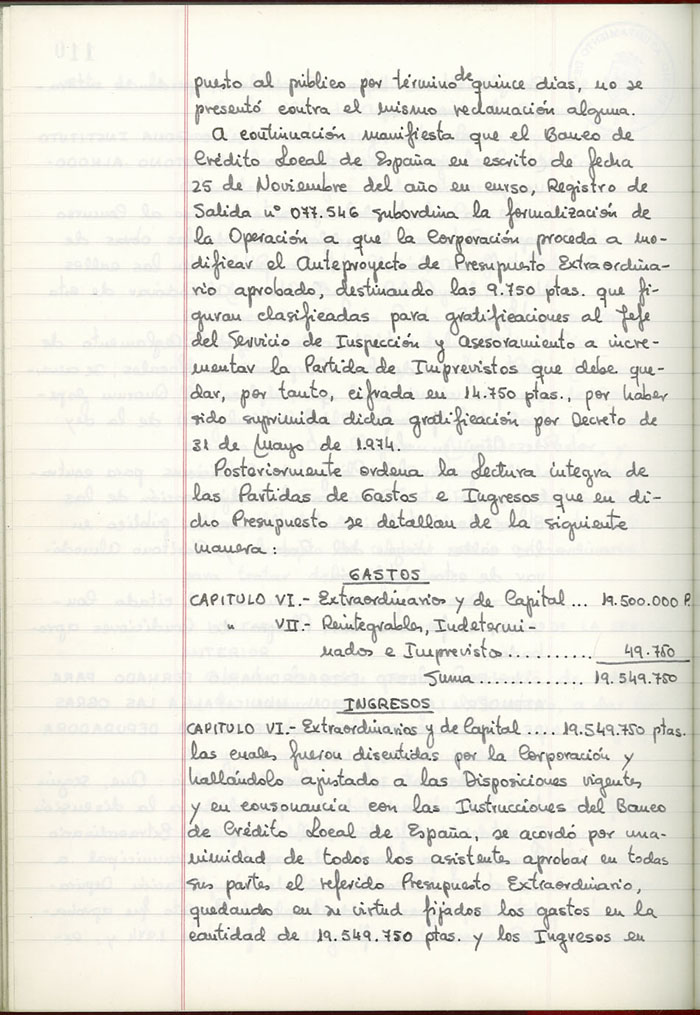 puesto al público por término de quince dias, no se
presentó contra el mismo reclamación alguna.
A continuación manifiesta que el Banco de
Crédito Local de España en escrito de fecha
25 de Noviembre del año en curso, Registro de
Salida nº 077.546 subordina la formalización de
la Operación a que la Corporación proceda a mo-
dificar el Anteproyecto de Presupuesto Extraordina-
rio aprobado, destinando las 9.750 ptas. que fi-
guran clasificadas para gratificaciones al Jefe
del Servicio de Inspección y Asesoramiento a incre-
mentar la Partida de Imprevistos que debe que-
dar, por tanto, cifrada en 14.750 ptas., por haber
sido suprimida dicha gratificación por Decreto de
31 de Mayo de 1.974.
Posteriormente ordena la Lectura integra de
las Partidas de Gastos e Ingresos que en di-
cho Presupuesto se detallan de la siguiente
manera:
GASTOS
CAPITULO VI.- Extraordinarios y de Capital ... 19.500.000 P.
" VII.- Reintegrables, Indetermi-
nados e Imprevistos........... 49.750
Suma........... 19.549.750
INGRESOS
CAPITULO VI.- Extraordinarios y de Capital .... 19.549.750 ptas.
las cuales fueron discutidas por la Corporación y
hallándolo ajustado a las Disposiciones vigentes
y en consonancia con las Instrucciones del Banco
de Crédito Local de España, se acordó por una-
nimidad de todos los asistentes aprobar en todas
sus partes el referido Presupuesto Extraordinario,
quedando en su virtud fijados los gastos en la
cantidad de 19.549.750 ptas. y los Ingresos en